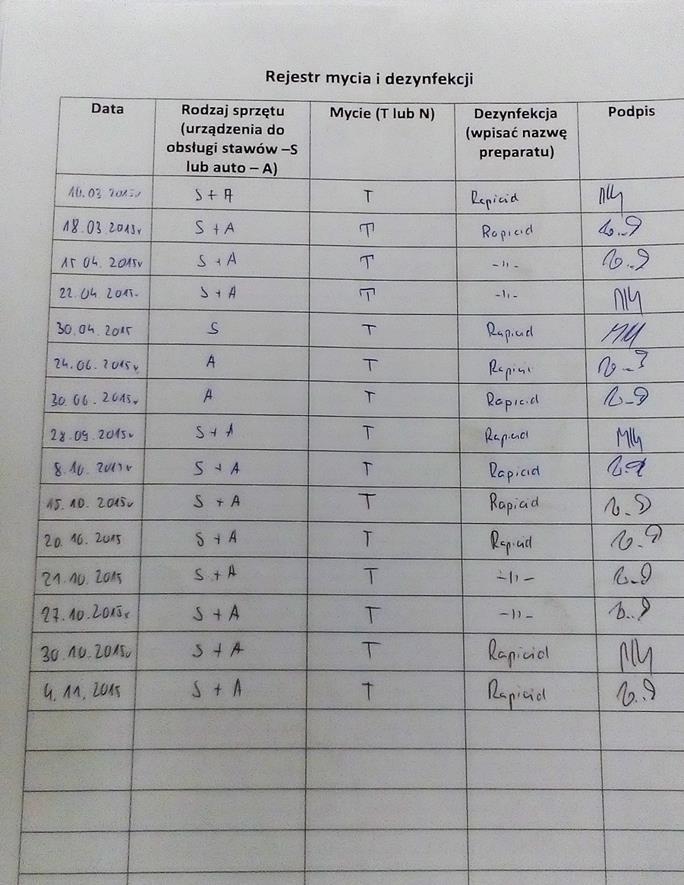 Rejestr mycia i dezynfekcji
Data Rodzaj sprzętu (urządzenia do obsługi stawów –S lub auto – A) Mycie (T lub N) Dezynfekcja (wpisać nazwę preparatu) Podpis
10.03 2015r S + A T Rapicid
18.03 2015r S + A T Rapicid
15 04. 2015r S + A T -„-
22.04 2015. S + A T -„-
30.04.2015 S T Rapicid
24.06.2015r A T Rapicid
30.06.2015r A T Rapicid
28.09.2015r S + A T Rapicid
8.10.2015r S + A T Rapicid
15.10.2015r S + A T Rapicid
20.10.2015 S + A T Rapicid
21.10.2015 S + A T -„-
27.10.2015r S + A T -„-
30.10.2015r S + A T Rapicid
4.11.2015 S + A T Rapicid